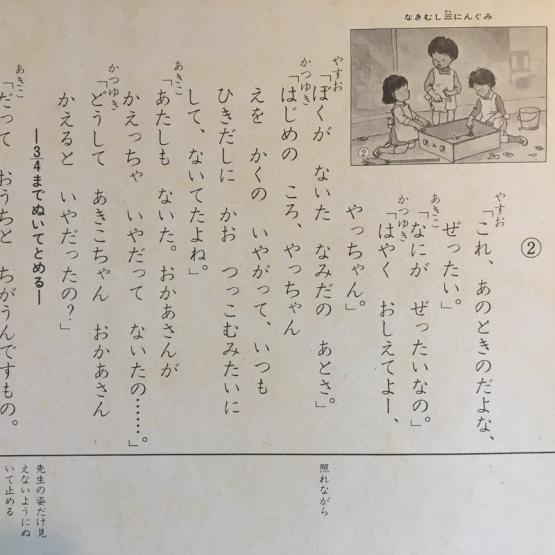 なきむし三にんぐみ
さん
②
②
やすお
「これ、あのときのだよな、
ぜったい。」
あきこ
「なにが ぜったいなの。」
かつゆき
「はやく おしえてよー、
やっちゃん。」
やすお
「ぼくが ないた なみだの あとさ。」
かつゆき
「はじめの ころ、やっちゃん
えを かくの いやがって、いつも
ひきだしに かお つっこむみたいに
して、ないてたよね。」
あきこ
「あたしも ないた。おかあさんが
かえっちゃ いやだって ないたの……。」
かつゆき
「どうして あきこちゃん おかあさん
かえると いやだったの?」
―3/4までぬいてとめる―
あきこ
「だって おうちと ちがうんですもの。
照れながら
先生の姿だけ見
えないようにぬ
いて止める